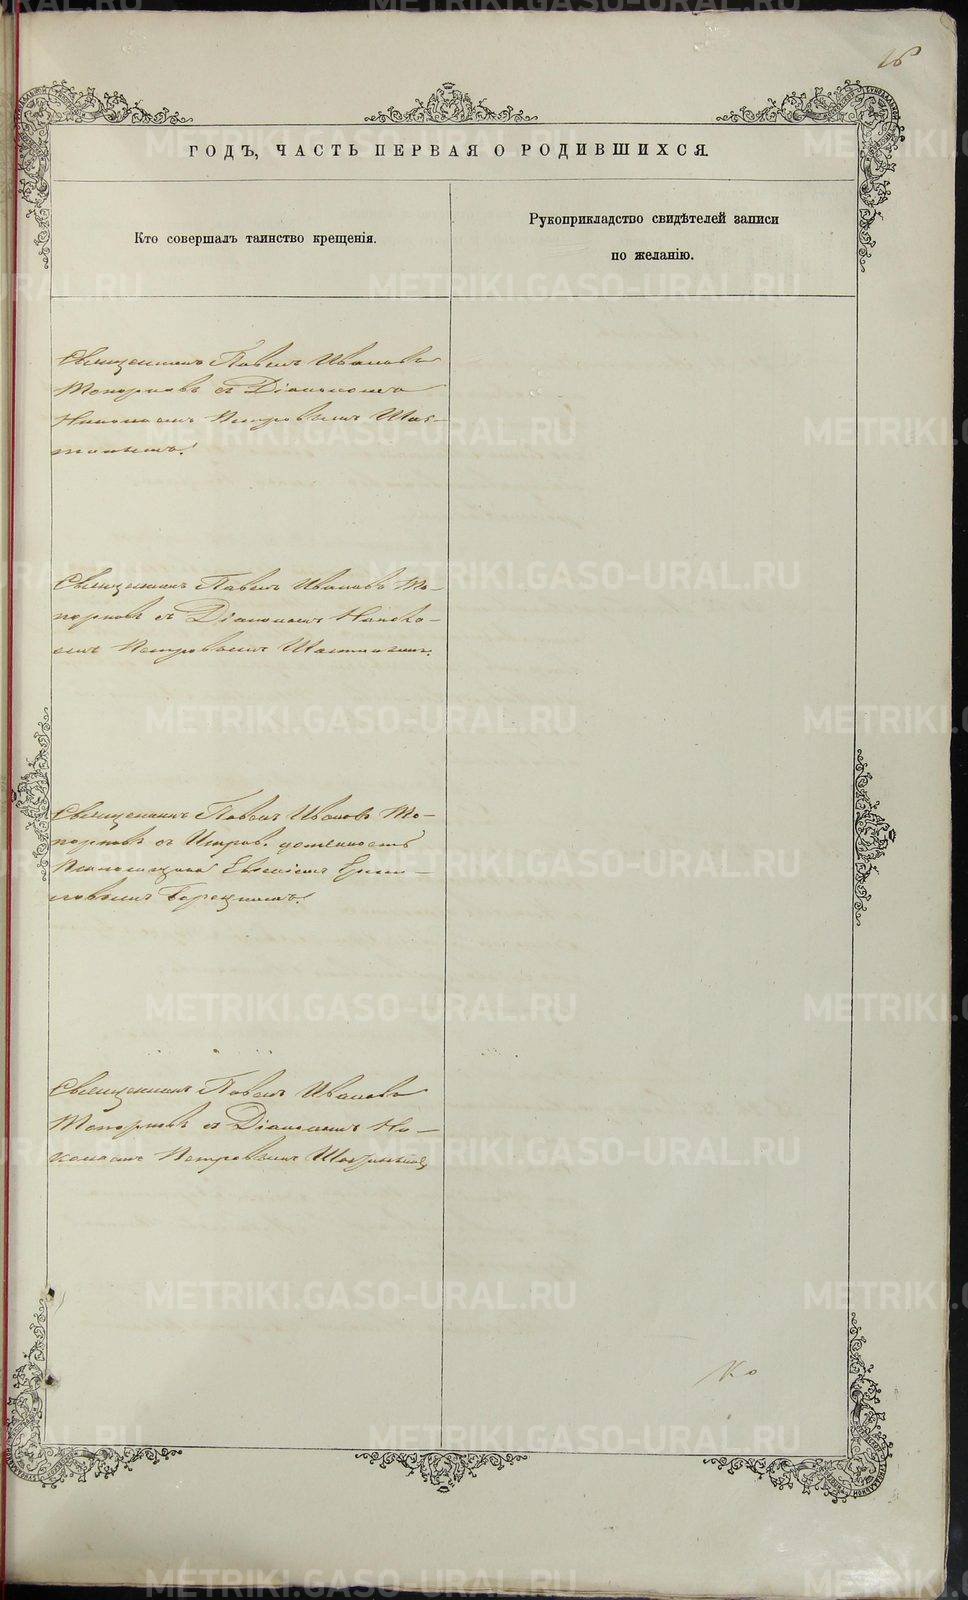 16
ГОДЪ, ЧАСТЬ ПЕРВАЯ О РОДИВШИХСЯ.
Кто совершалъ таинство крещенія.
Рукоприкладство свидѣтелей записи
по желанію.
Священникъ Павелъ Ивановъ
Топорковъ съ Діакономъ
Николаемъ Петровымъ Шас-
тинымъ.
Священникъ Павелъ Ивановъ То-
порковъ съ Діакономъ Никола-
емъ Петровымъ Шастинымъ.
Священникъ Павелъ Ивановъ То-
порковъ съ Исправ. должность
Псаломщика Евгеніемъ
Священникъ Павелъ Ивановъ
Топорковъ съ Діакономъ Ни-
колаемъ Петровымъ Шастинымъ
METRIKI.GASO-URAL.RU